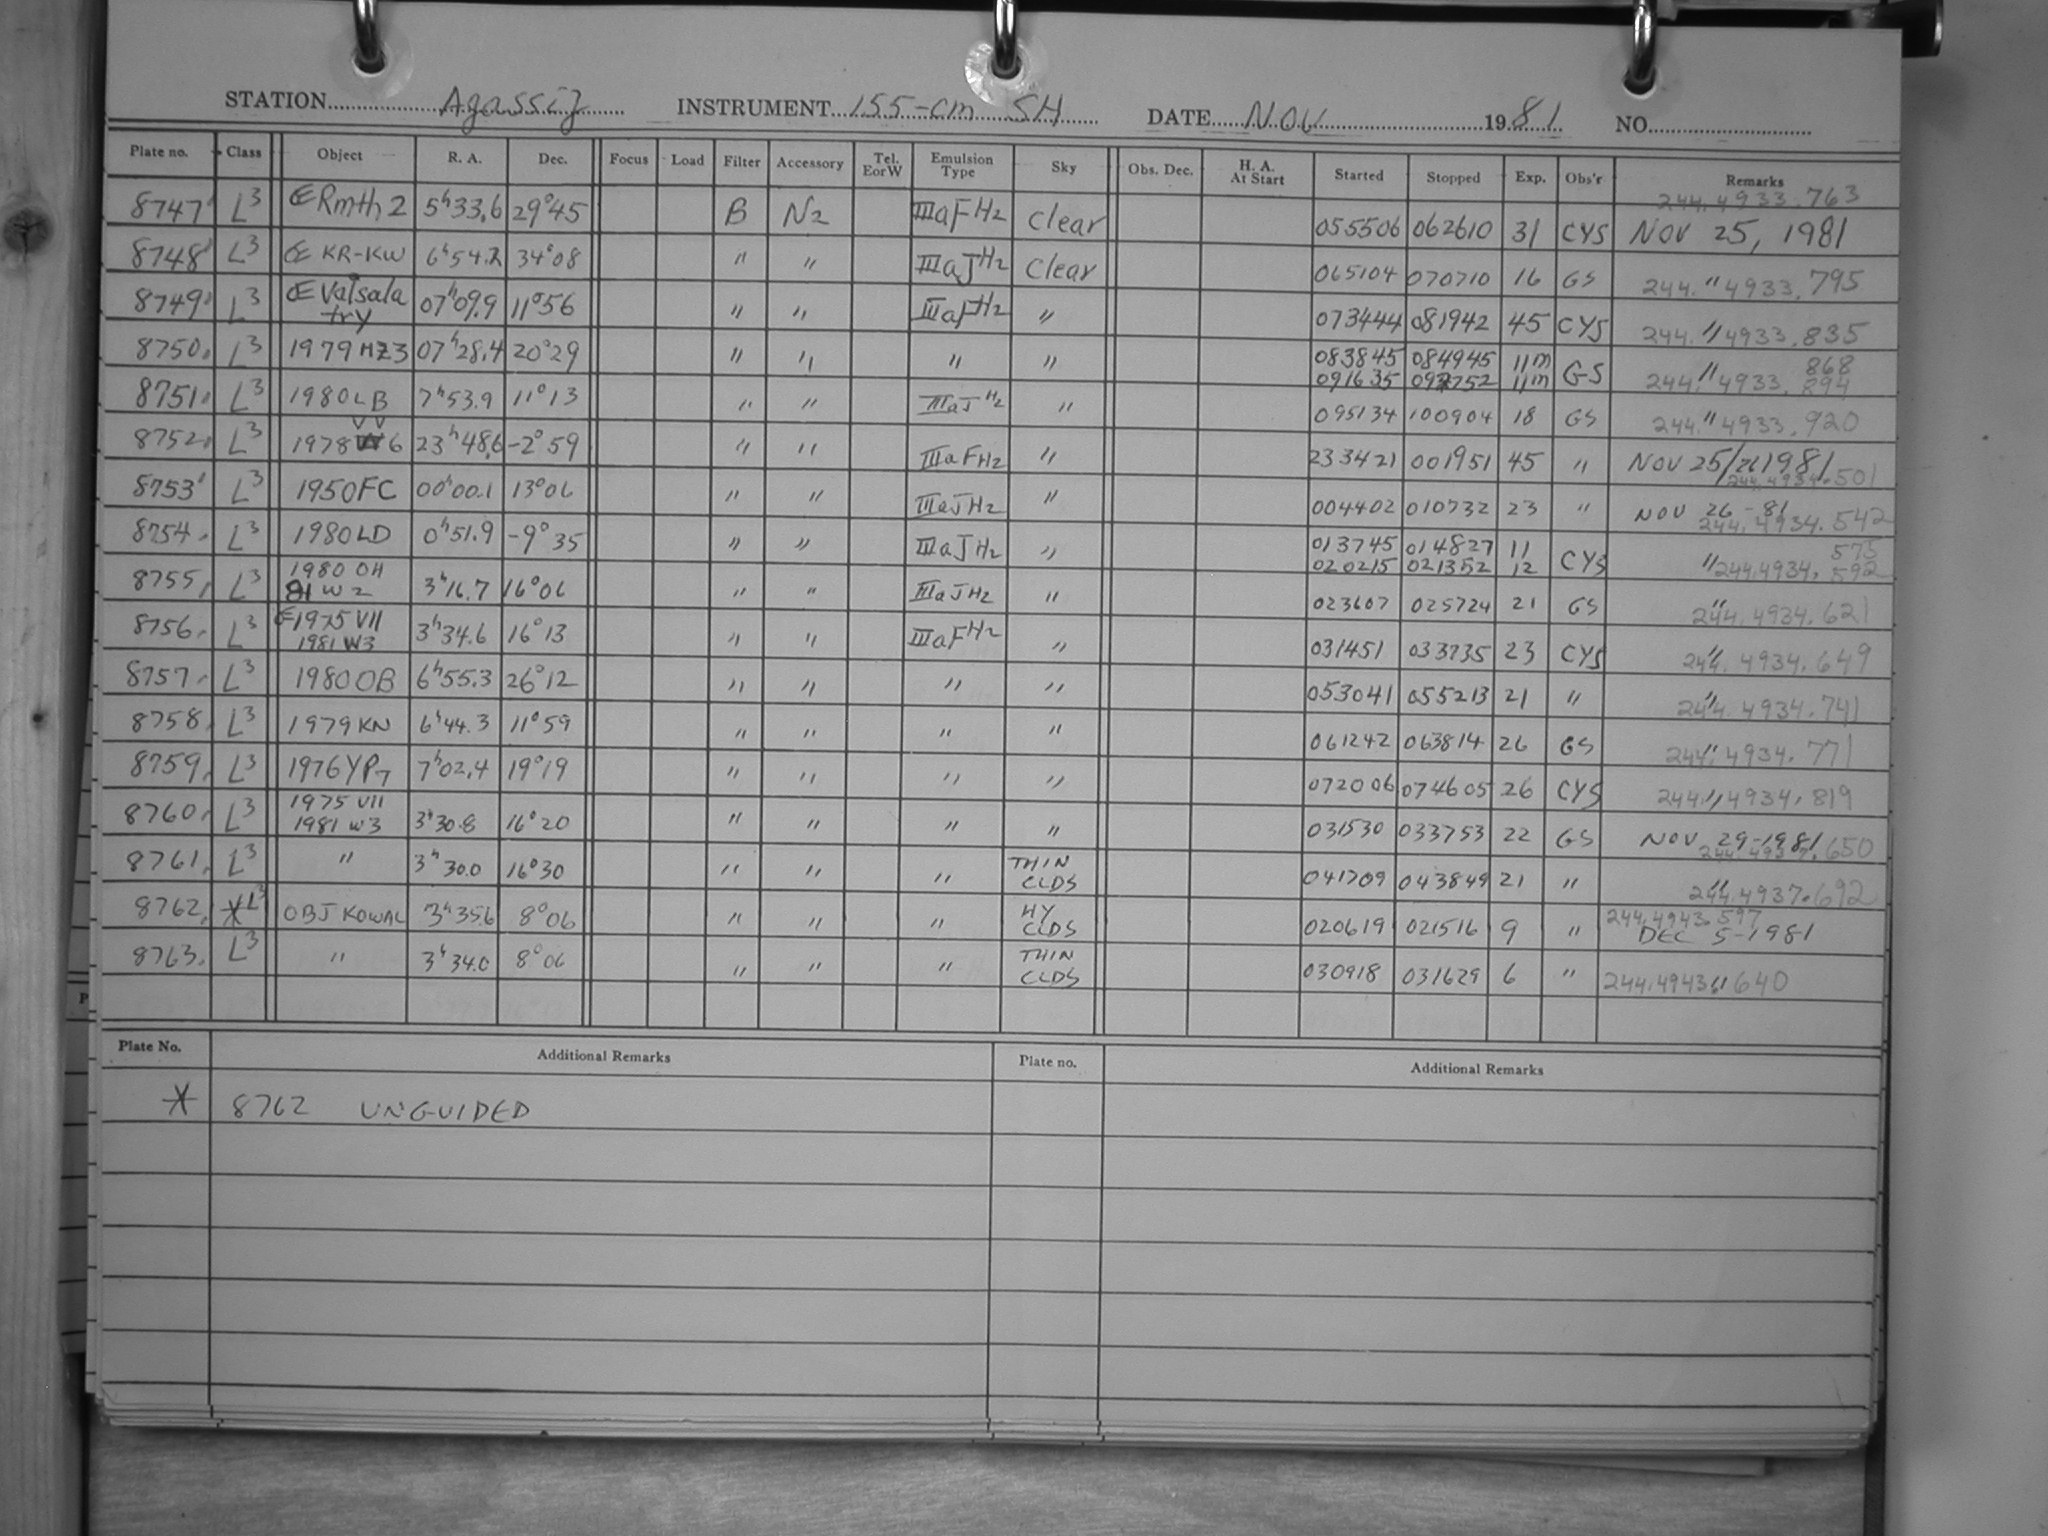 STATION Agassiz INSTRUMENT 155-cm SH DATE Nov 1981 NO.
Plate no. Class Object R. A. Dec. Focus Load Filter Accessory Tel. EorW Emulsion Type Sky Obs. Dec. H. A. At Start Started Stopped Exp. Obs'r Remarks
8747 L3 Œ Rmth 2 5h33.6 29°45 B N2 IIIaF H2 Clear 055506 062610 31 CYS 244.4933.763 NOV 25, 1981
8748 L3 Œ KR-KW 6h54.2 34°08 " " IIIaJ H2 Clear 065104 070710 16 GS 244. " 4933.795
8749 L3 Œ Vaisala try 07h09.9 11°56 " " IIIaF H2 " 073444 081942 45 CYS 244. " 4933.835
8750 L3 1979 HZ3 07h28.4 20°29 " " " " 083845 084945 11m GS " 868
091635 092752 11m 244. 4933.894
8751 L3 1980 LB 7h53.9 11°13 " " IIIaJ H2 " 095134 100904 18 GS 244. " 4933.920
8752 L3 1978 VV6 23h48.6 -2°59 " " IIIaF H2 " 233421 001951 45 " NOV 25/26 1981 244.4934.501
8753 L3 1950FC 00h00.1 13°06 " " IIIaJ H2 " 004402 010732 23 " NOV 26-81 244.4934.542
8754 L3 1980LD 0h51.9 -9°35 " " IIIaJ H2 " 013745 014827 11 CYS " 575
020215 021352 12 244.4934.592
8755 L3 1980 OH 81 W2 3h16.7 16°06 " " IIIaJ H2 " 023607 025724 21 GS 244. " 4934.621
8756 L3 Œ 1975 VII 1981 W3 3h34.6 16°13 " " IIIaF H2 " 031451 033735 23 CYS 244. " 4934.649
8757 L3 1980OB 6h55.3 26°12 " " " " 053041 055213 21 " 244. " 4934.741
8758 L3 1979KN 6h44.3 11°59 " " " " 061242 063814 26 GS 244. " 4934.771
8759 L3 1976YP7 7h02.4 19°19 " " " " 072006 074605 26 CYS 244. " 4934.819
8760 L3 1975 VII 1981 W3 3h30.8 16°20 " " " " 031530 033753 22 GS NOV 29-1981 244.4937.650
8761 L3 " 3h30.0 16°30 " " " THIN CLDS 041709 043849 21 " 244. " 4937.692
8762 *L3 OBJ KOWAL 3h35.6 8°06 " " " HY CLDS 020619 021516 9 " 244.4943.597 DEC 5-1981
8763 L3 " 3h34.0 8°06 " " " THIN CLDS 030918 031629 6 " 244.4943 " 640
Plate No. Additional Remarks Plate no. Additional Remarks
* 8762 UNGUIDED